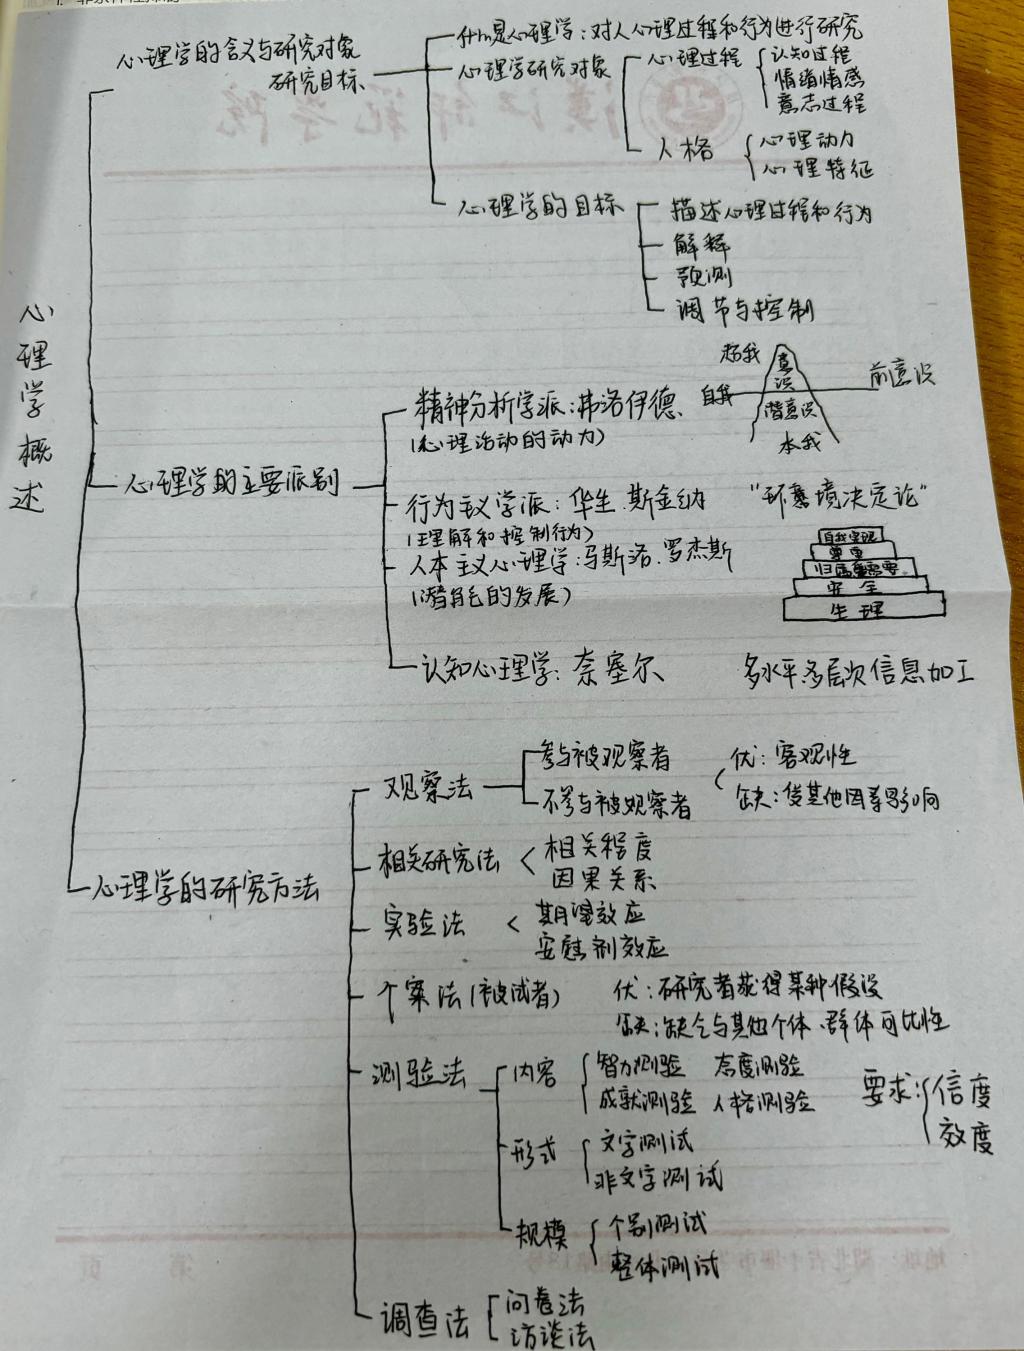 心理学概述
心理学的含义与研究对象
研究目标
什么是心理学:对人心理过程和行为进行研究
心理学研究对象
心理过程
认知过程
情绪情感
意志过程
人格
心理动力
心理特征
心理学的目标
描述心理过程和行为
解释
预测
调节与控制
心理学的主要派别
精神分析学派:弗洛伊德、
(心理活动的动力)
超我
自我
意识
前意识
潜意识
本我
行为主义学派:华生.斯金纳
(理解和控制行为)
“环境决定论”
人本主义心理学:马斯洛.罗杰斯
(潜能的发展)
自我实现
尊重
归属需要
安全
生理
认知心理学:奈塞尔
多水平多层次信息加工
心理学的研究方法
观察法
参与被观察者
不参与被观察者
优:客观性
缺:受其他因素影响
相关研究法
相关程度
因果关系
实验法
期望效应
安慰剂效应
个案法(被试者)
优:研究者获得某种假设
缺:缺乏与其他个体.群体可比性
测验法
内容
智力测验 态度测验
成就测验 人格测验
要求:
信度
效度
形式
文字测试
非文字测试
规模
个别测试
整体测试
调查法
问卷法
访谈法
漢江師範学院
第 页